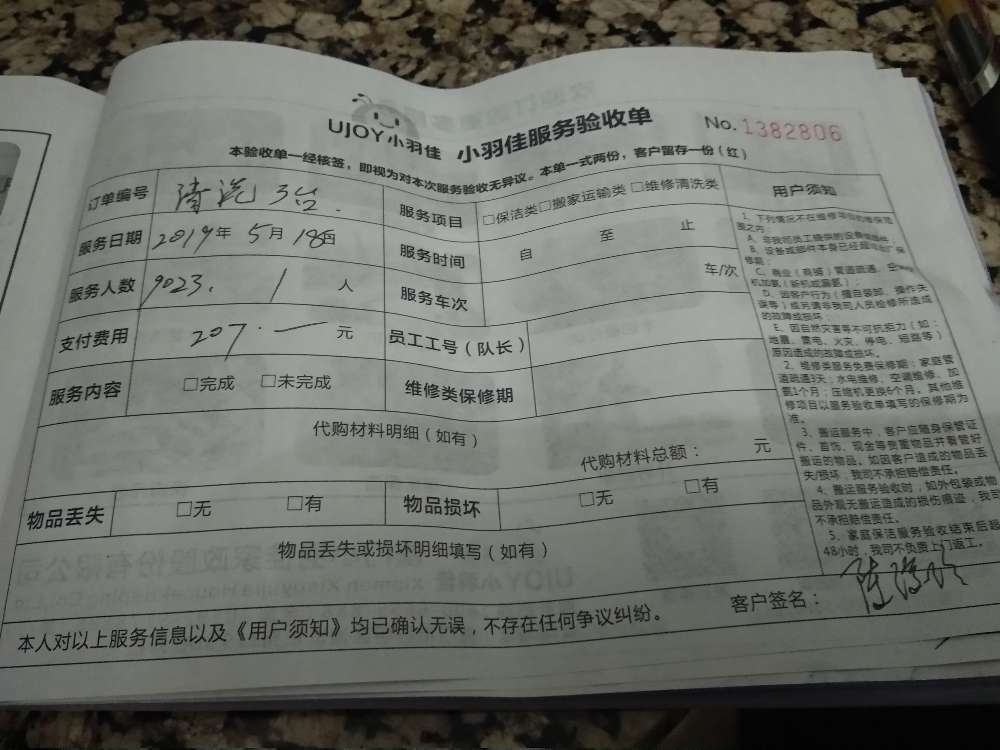 UJOY小羽佳 小羽佳服务验收单 No.1382806
本验收单一经核签，即视为对本次服务验收无异议。本单一式两份，客户留存一份（红）
订单编号 清洗3台. 服务项目 □保洁类□搬家运输类 □维修清洗类
服务日期 2019年 5月 18日 服务时间 自 至 止
服务人数 9023. 1 人 服务车次 车/次
支付费用 207.一 元 员工工号（队长）
服务内容 □完成 □未完成 维修类保修期
代购材料明细（如有）
代购材料总额： 元
物品丢失 □无 □有 物品损坏 □无 □有
物品丢失或损坏明细填写（如有）
本人对以上服务信息以及《用户须知》均已确认无误，不存在任何争议纠纷。 客户签名：
用户须知
1、下列情况不在维修
围之内：
A、非我司员工提供的设备
B、设备或部件本身已经超
修期；
C、商业（商铺）管道疏通、空
机加氨（新机或漏氨）；
D、因客户行为（擅自装卸、操作失
误等）或另请非我司人员检修所造成
的故障或损坏；
E、因自然灾害等不可抗拒力（如：
地震、雷电、火灾、停电、短路等）
原因造成的故障或损坏。
2、维修类服务免费保修期：家庭管
道疏通3天；水电维修、空调维修、加
氨1个月；压缩机更换6个月。其他维
修项目以服务验收单填写的保修期为
准。
3、搬运服务中，客户应随身保管证
件、首饰、现金等贵重物品并看管好
搬运的物品。如因客户造成的物品丢
失/损坏，我司不承担赔偿责任。
4、搬运服务验收时，如外包装或物
品外观无搬运造成的损伤痕迹，我司
不承担赔偿责任。
5、家庭保洁服务验收结束后超
48小时，我司不负责上门返工。